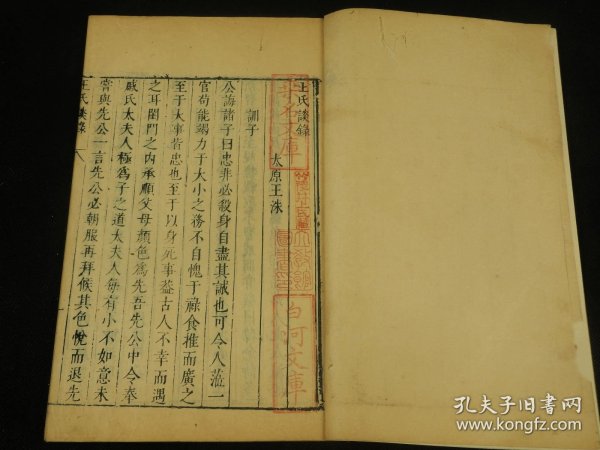 王氏談錄
太原王洙
訓子
公誨諸子曰忠非必殺身自盡其誠也可令人蒞一
官苟能竭力于大小之務不自愧于祿食推而廣之
至于大事者忠也至于以身死事蓋古人不幸而遇
之耳閨門之內承順父母顏色爲先吾先公中令奉
戚氏太夫人極爲子之道太夫人每有小不如意未
嘗與先公一言先公必朝服再拜候其色悅而退先
王氏談錄
白河文庫
孔夫子旧书网
www.kongfz.com